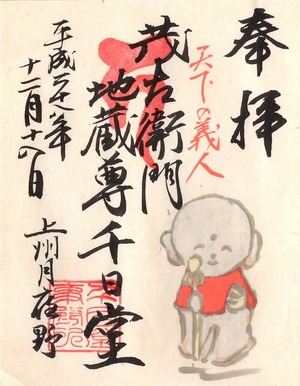 奉拝
天下の義人
茂左衛門
地蔵尊千日堂
上州月夜野
平成二十八年
十二月十八日